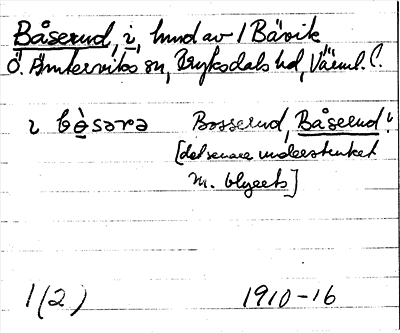 Båserud, i, hmd av / Bävik
Ö. Ämterviks sn, Fryksdals hd, Värml. l.
i bè̱sərə Bosserud, Båserud i
[det senare understruket
m. blyerts]
1(2) 1910-16